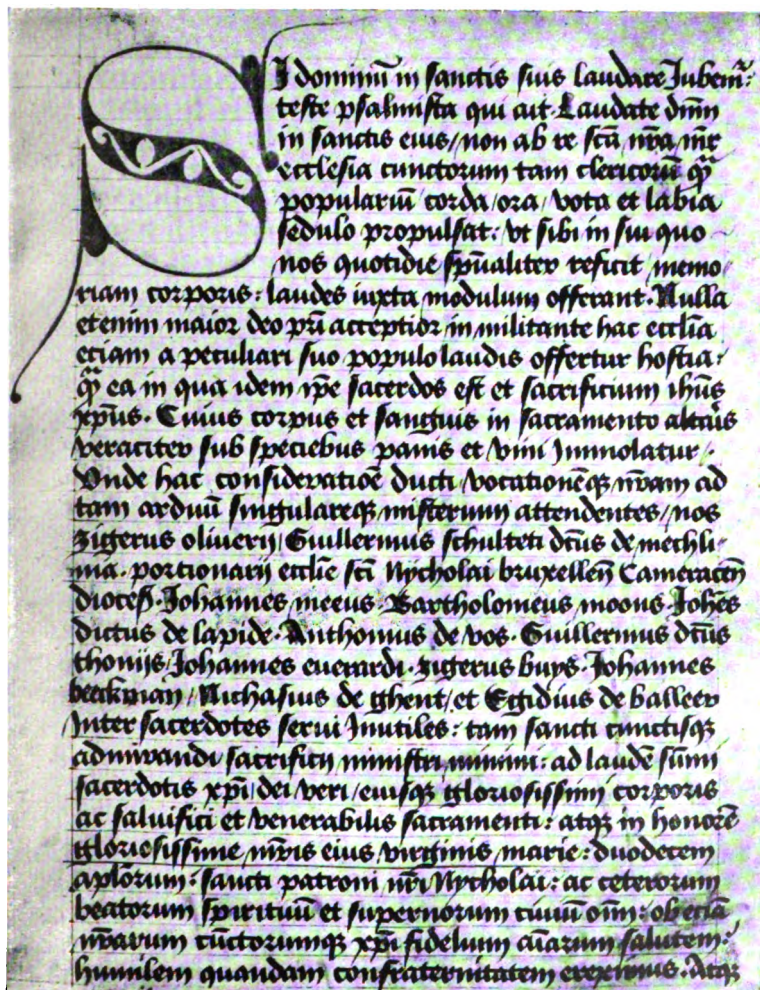 SI dominū in sanctis suis laudare Jubem᷑:
teste psalmista qui ait Laudate dn̄m
in sanctis eius/ non ab re sc̄a nr̄a mr̄
ecclesia cunctorum tam clericorū qȝ̄
populariū corda/ ora/ vota et labia
sedulo propulsat: vt sibi in sui quo
nos quotidie sp̄ualiter reficit/ memo/
riam corporis: laudes iuxta modulum offerant. Nulla
etenim maior deo pr̄i acceptior in militante hac eccl̄ia
eciam a peculiari suo populo laudis offertur hostia:
qȝ̄ ea in qua idem ip̄e sacerdos est et sacrificium ihūs
xp̄us. Cuius corpus et sanguis in sacramento altar̄is
veraciter sub speciebus panis et vini Jmmolatur.
Vnde hac consideratiōe ducti/ vocationēqȝ nr̄am ad
tam arduū singulareqȝ misterium attendentes/ nos
zigerus oliuerij/ Guillermus schulteti dc̄us de mechli-
nia. portionarij eccl̄ie sc̄i Nycholai bruxellen̄ Cameracen̄
dioces̄. Johannes meeus. Bartholomeus moons. Joh̄es
dictus de lapide. Anthonius de vos. Guillermus dc̄us
thonijs/ Johannes euerardi. zigerus buys. Johannes
beeckman/ Nichasius de ghent/ et Egidius de balleer
Jnter sacerdotes serui Jnutiles: tam sancti cunctisqȝ
admirandi sacrificij ministri minimi: ad laudē sūmi
sacerdotis xp̄i/ dei veri/ eiusqȝ gloriosissimi corporis
ac saluifici et venerabilis sacramenti: atqȝ in honorē
gloriosissime mr̄is eius virginis marie: duodecem
apl̄orum: sancti patroni nr̄i Nycholai: ac ceterorum
beatorum spirituū et supernorum ciuiū om̄: ob eciā
nr̄arum cūctorumqȝ xp̄i fidelium aīarum salutem:
humilem quandam confraternitatem ereximus. Atqȝ